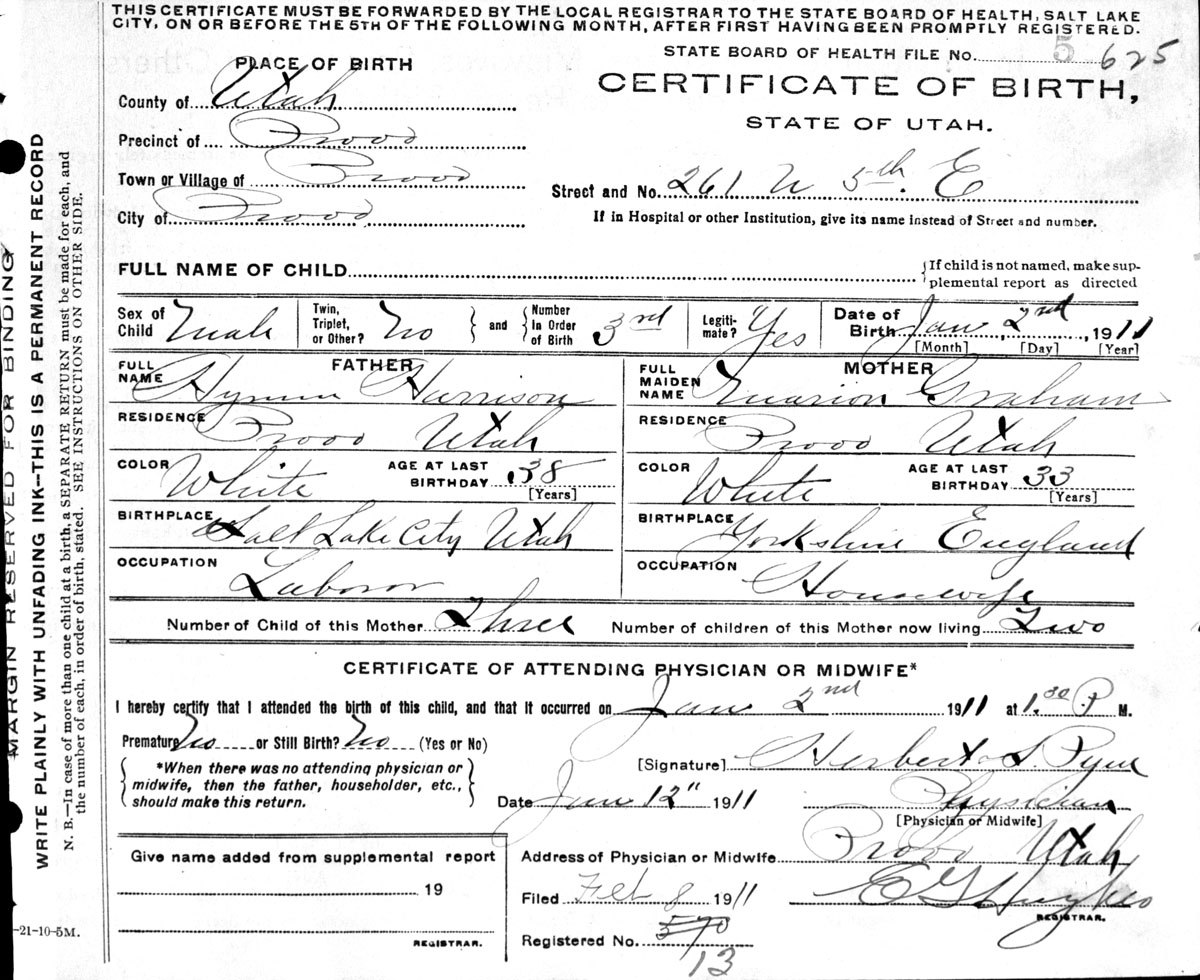 THIS CERTIFICATE MUST BE FORWARDED BY THE LOCAL REGISTRAR TO THE STATE BOARD OF HEALTH, SALT LAKE
CITY, ON OR BEFORE THE 5TH OF THE FOLLOWING MONTH, AFTER FIRST HAVING BEEN PROMPTLY REGISTERED.
STATE BOARD OF HEALTH FILE No. 5 625
PLACE OF BIRTH
CERTIFICATE OF BIRTH,
STATE OF UTAH.
County of Utah
Precinct of Provo
Town or Village of Provo
City of Provo
Street and No. 261 N 5th. E
If in Hospital or other Institution, give its name instead of Street and number.
FULL NAME OF CHILD
{If child is not named, make sup-
plemental report as directed
Sex of Child Male
Twin, Triplet, or Other? No } and { Number In Order of Birth 3rd
Legiti-mate? Yes
Date of Birth Jan 2nd, 1911
[Month] [Day] [Year]
FATHER
FULL NAME Hyrum Harrison
RESIDENCE Provo Utah
COLOR White AGE AT LAST BIRTHDAY 38
[Years]
BIRTHPLACE Salt Lake City Utah
OCCUPATION Laboror
MOTHER
FULL MAIDEN NAME Marion Graham
RESIDENCE Provo Utah
COLOR White AGE AT LAST BIRTHDAY 33
[Years]
BIRTHPLACE Yorkshire England
OCCUPATION Housewife
Number of Child of this Mother Three Number of children of this Mother now living Two
CERTIFICATE OF ATTENDING PHYSICIAN OR MIDWIFE*
I hereby certify that I attended the birth of this child, and that it occurred on Jan 2nd 1911 at 1.30 P M.
Premature No or Still Birth? No (Yes or No)
{*When there was no attending physician or
midwife, then the father, householder, etc.,
should make this return.}
[Signature] Herbert S Pyne
Date Jan 12" 1911 Physician
[Physician or Midwife]
Address of Physician or Midwife Provo Utah
Filed Feb 8 1911 E G Hughes
REGISTRAR.
Registered No. 570
13
Give name added from supplemental report
19
REGISTRAR.
MARGIN RESERVED FOR BINDING
WRITE PLAINLY WITH UNFADING INK--THIS IS A PERMANENT RECORD
N. B.—In case of more than one child at a birth, a SEPARATE RETURN must be made for each, and
the number of each, in order of birth, stated. SEE INSTRUCTIONS ON OTHER SIDE.
-21-10-5M.